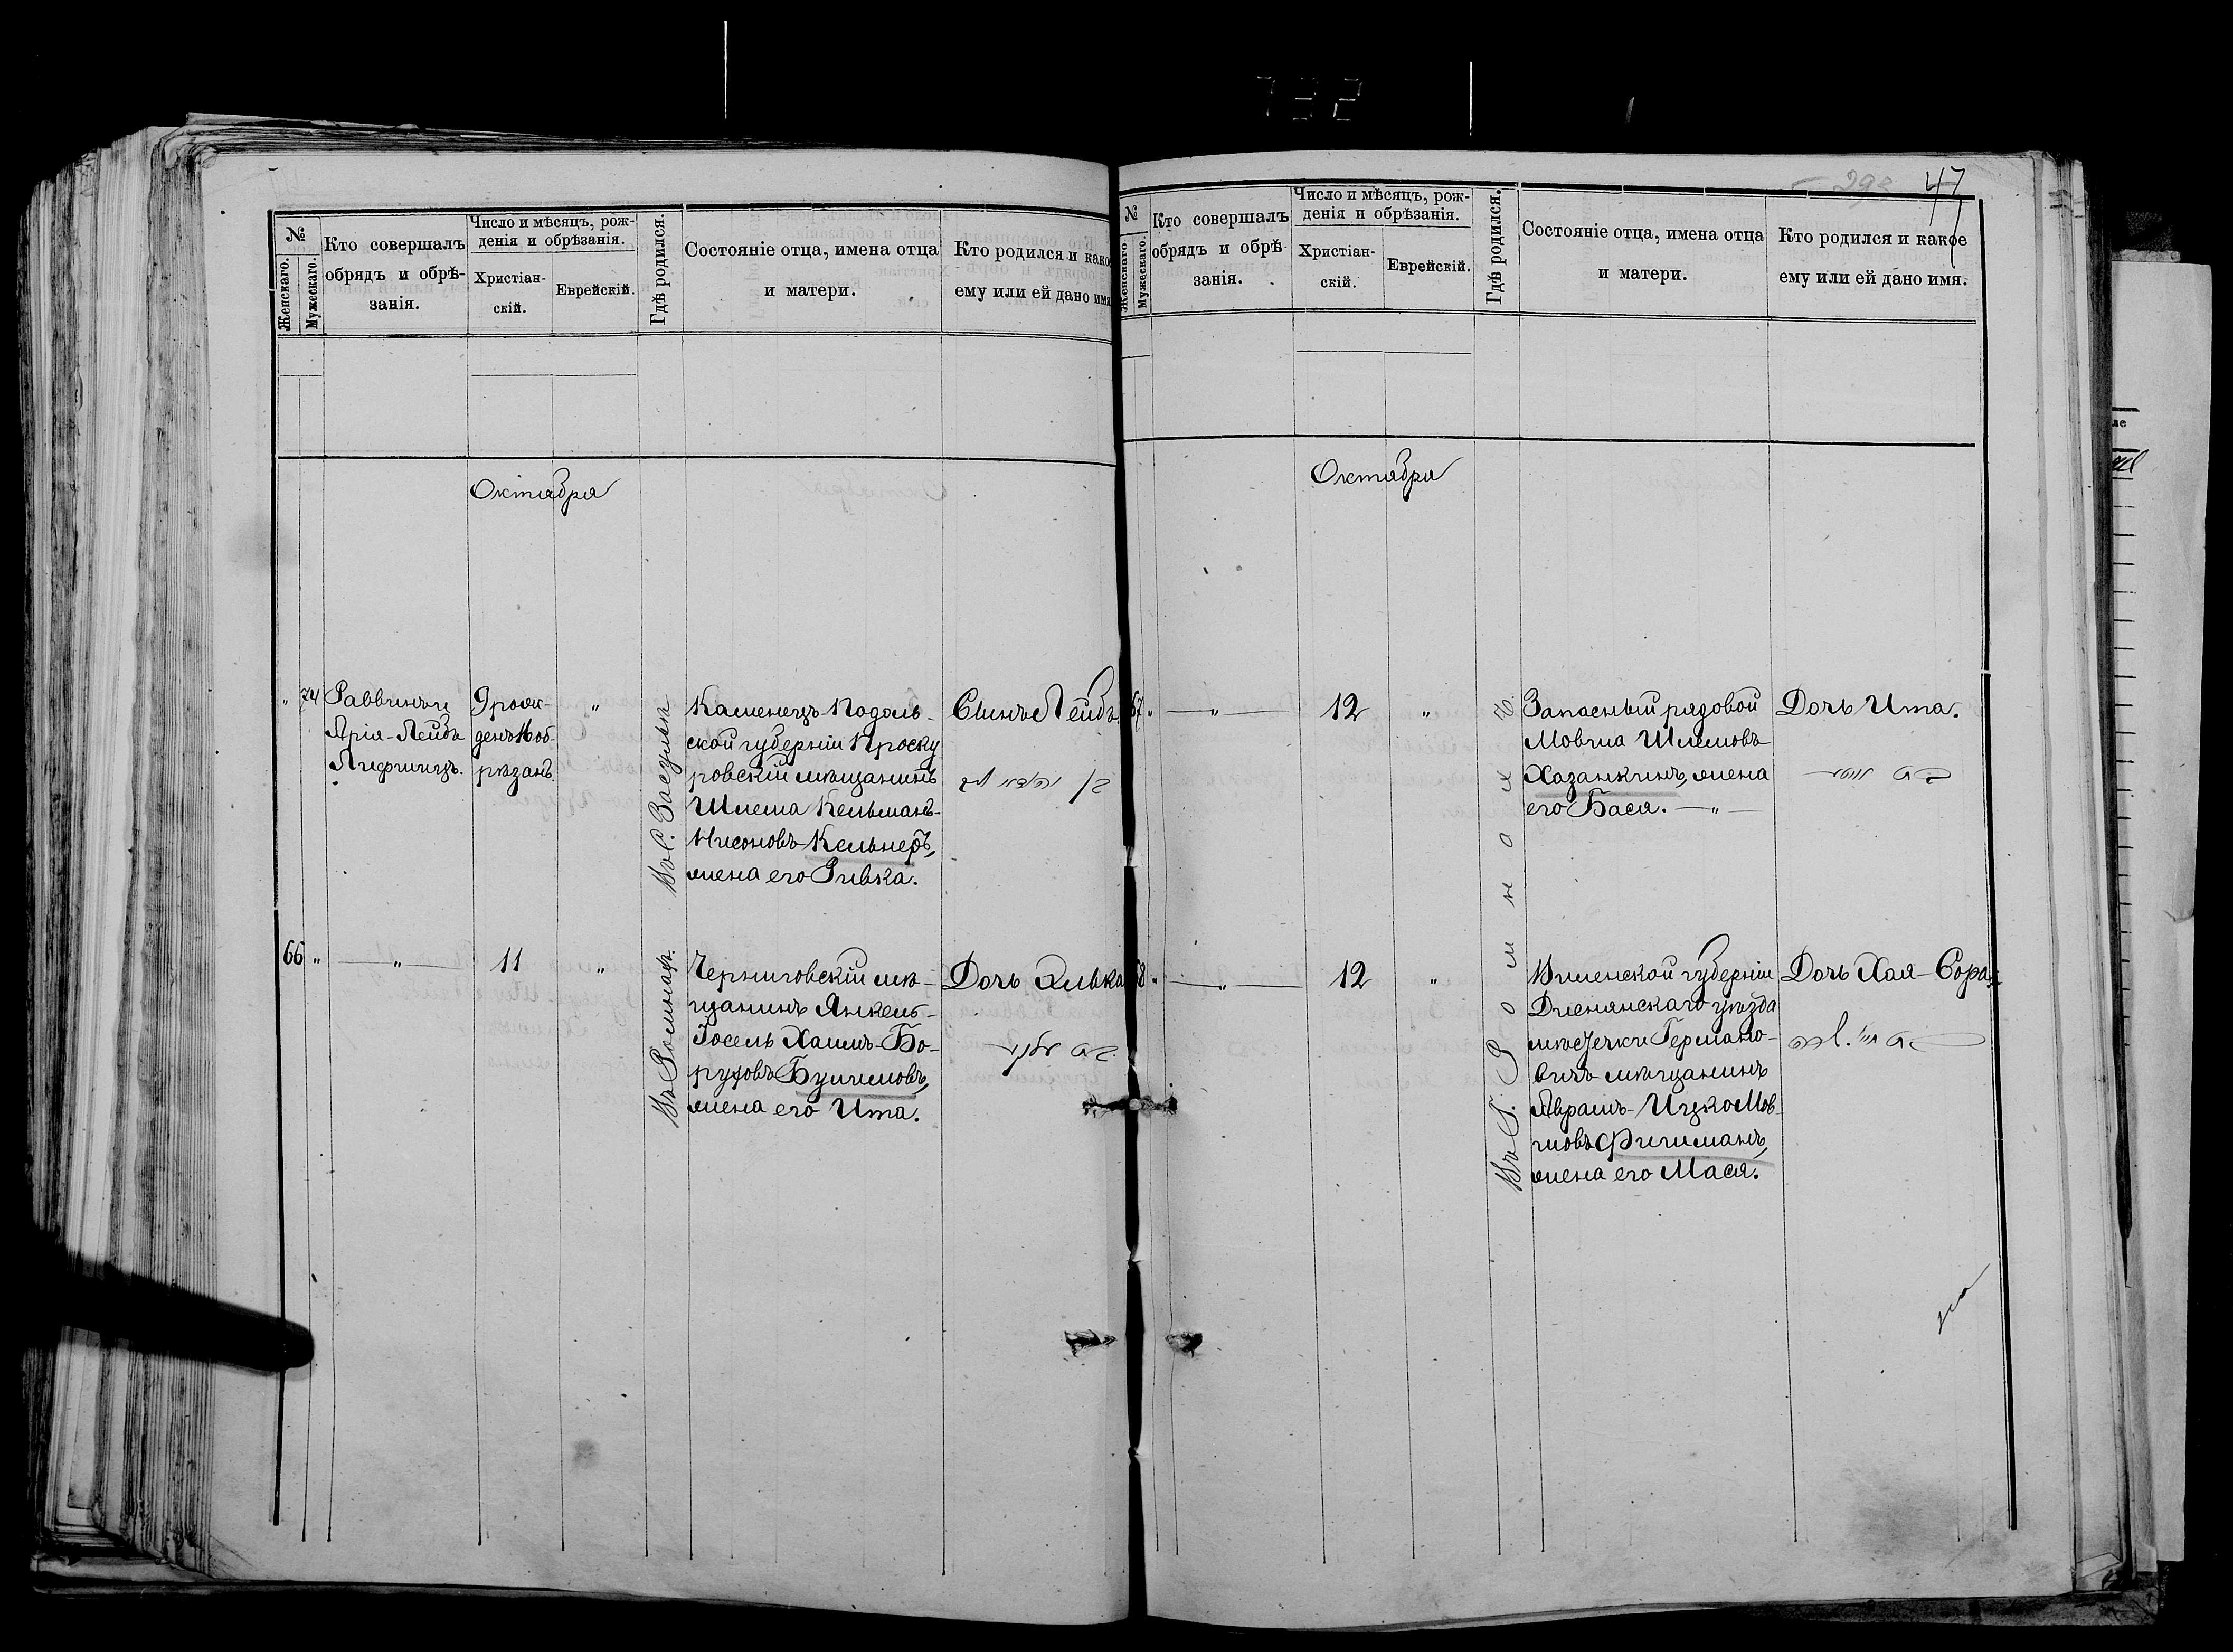 732
№
Женскаго.
Мужескаго.
Кто совершалъ
обрядъ и обрѣ-
занія.
Число и мѣсяцъ, рож-
денія и обрѣзанія.
Христіан-
скій.
Еврейскій.
Гдѣ родился.
Состояніе отца, имена отца
и матери.
Кто родился и какое
ему или ей дано имя
Октября
" 74
Раввинъ
Арія-Лейбъ
Лифшицъ.
9 рож-
денъ 16 об-
рѣзанъ.
"
Въ С. Засулье
Каменецъ-Подоль-
ской губерніи Проску
ровскій мѣщанинъ
Шлема Кельманъ-
Нисоновъ Кельнеръ,
жена его Ривка.
Сынъ Лейбъ.
66 "
"
11
"
Въ Ромнахъ.
Черниговскій мѣ-
щанинъ Янкель-
Іосель Хаимъ-Бо-
руховъ
жена его Ита.
Дочь Элька
№
Женскаго
Мужескаго.
Кто совершалъ
обрядъ и обрѣ-
занія.
Число и мѣсяцъ, рож-
денія и обрѣзанія.
Христіан-
скій.
Еврейскій.
Гдѣ родился.
Состояніе отца, имена отца
и матери.
Кто родился и какое
ему или ей дано имя.
47
Октября
67 "
"
12
"
Въ Г. Ромнахъ
Запасный рядовой
Мовша Шлемовъ
Хазанкинъ, жена
его Бася. — " —
Дочь Ита.
68 "
"
12
"
Виленской губерніи
Дисненскаго уѣзда
мѣстечки Германо-
вичъ мѣщанинъ
Абрамъ-Ицко Мов-
шовъ Фишманъ,
жена его Мася.
Дочь Хая-Сора.